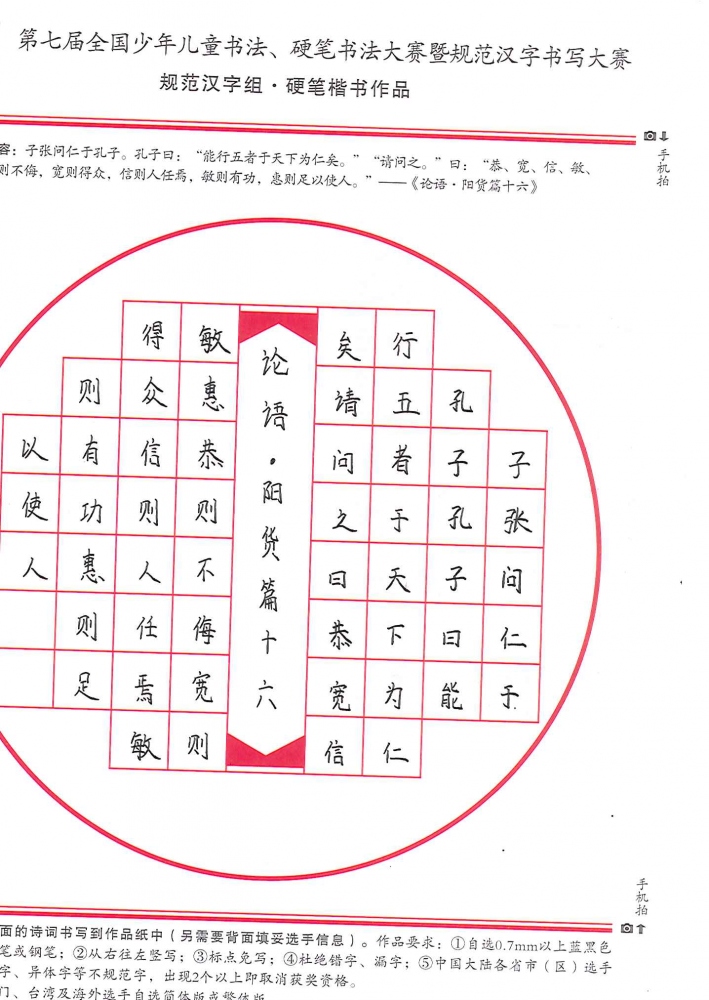 第七届全国少年儿童书法、硬笔书法大赛暨规范汉字书写大赛
规范汉字组·硬笔楷书作品
手机拍
容：子张问仁于孔子。孔子曰：“能行五者于天下为仁矣。”“请问之。”曰：“恭、宽、信、敏、
则不侮，宽则得众，信则人任焉，敏则有功，惠则足以使人。”——《论语·阳货篇十六》
子张问仁于
孔子孔子曰能
行五者于天下为仁
矣请问之曰恭宽信
论语·阳货篇十六
敏惠恭则不侮宽则
得众信则人任焉敏
则有功惠则足
以使人
手机拍
面的诗词书写到作品纸中（另需要背面填妥选手信息）。作品要求：①自选0.7mm以上蓝黑色
笔或钢笔；②从右往左竖写；③标点免写；④杜绝错字、漏字；⑤中国大陆各省市（区）选手
字、异体字等不规范字，出现2个以上即取消获奖资格。
门、台湾及海外选手自选简体版或繁体版